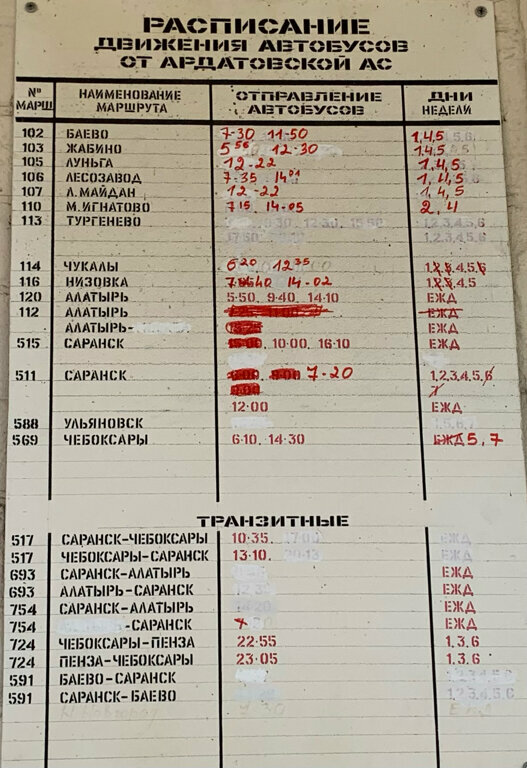 РАСПИСАНИЕ
ДВИЖЕНИЯ АВТОБУСОВ
ОТ АРДАТОВСКОЙ АС
№ МАРШ НАИМЕНОВАНИЕ МАРШРУТА ОТПРАВЛЕНИЕ АВТОБУСОВ ДНИ НЕДЕЛИ
102 БАЕВО 7-30 11-50 1,4,5
103 ЖАБИНО 12-30 1,4,5
105 ЛУНЬГА 12-22 1,4,5
106 ЛЕСОЗАВОД 7-35 14 01 1,4,5
107 Л.МАЙДАН 12-22 1,4,5
110 М.ИГНАТОВО 7 15 14-05 2,4
113 ТУРГЕНЕВО 12.30, 15 50 1,2,3,4,5,6
1,2,3,4,5,6
114 ЧУКАЛЫ 6 20 12 35 1,2,3,4,5,6
116 НИЗОВКА 14-02 1,2,3,4,5
120 АЛАТЫРЬ 5·50, 9·40, 14·10 ЕЖД
112 АЛАТЫРЬ ЕЖД
АЛАТЫРЬ- ЕЖД
515 САРАНСК 10·00, 16·10 ЕЖД
511 САРАНСК 7-20 1,2,3,4,5,6
12·00 ЕЖД
588 УЛЬЯНОВСК
569 ЧЕБОКСАРЫ 6·10, 14·30 ЕЖД 5,7
ТРАНЗИТНЫЕ
517 САРАНСК-ЧЕБОКСАРЫ 10·35, ЕЖД
517 ЧЕБОКСАРЫ-САРАНСК 13·10, 20·13 ЕЖД
693 САРАНСК-АЛАТЫРЬ ЕЖД
693 АЛАТЫРЬ-САРАНСК ЕЖД
754 САРАНСК-АЛАТЫРЬ ЕЖД
754 -САРАНСК ЕЖД
724 ЧЕБОКСАРЫ-ПЕНЗА 22·55 1,3,6
724 ПЕНЗА-ЧЕБОКСАРЫ 23·05 1,3,6
591 БАЕВО-САРАНСК
591 САРАНСК-БАЕВО 1,2,3,4,5,6